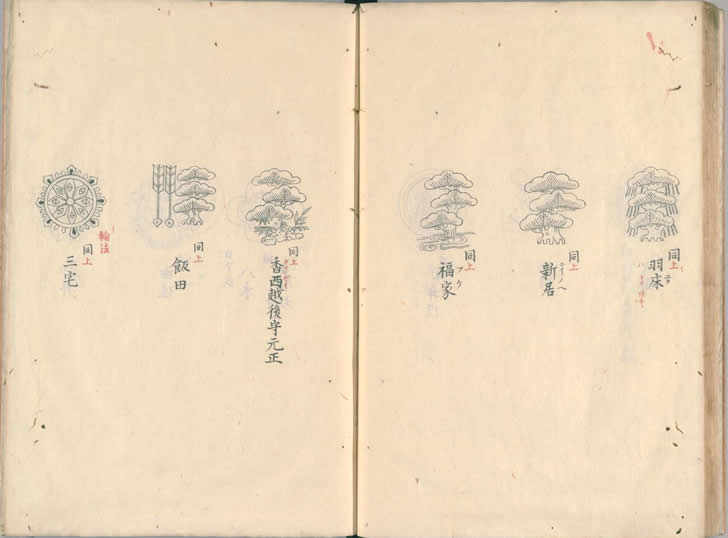 同上
羽床
同上
新居
同上
福家
フケ
同上
香西越後守元正
同上
飯田
輪法
同上
三宅